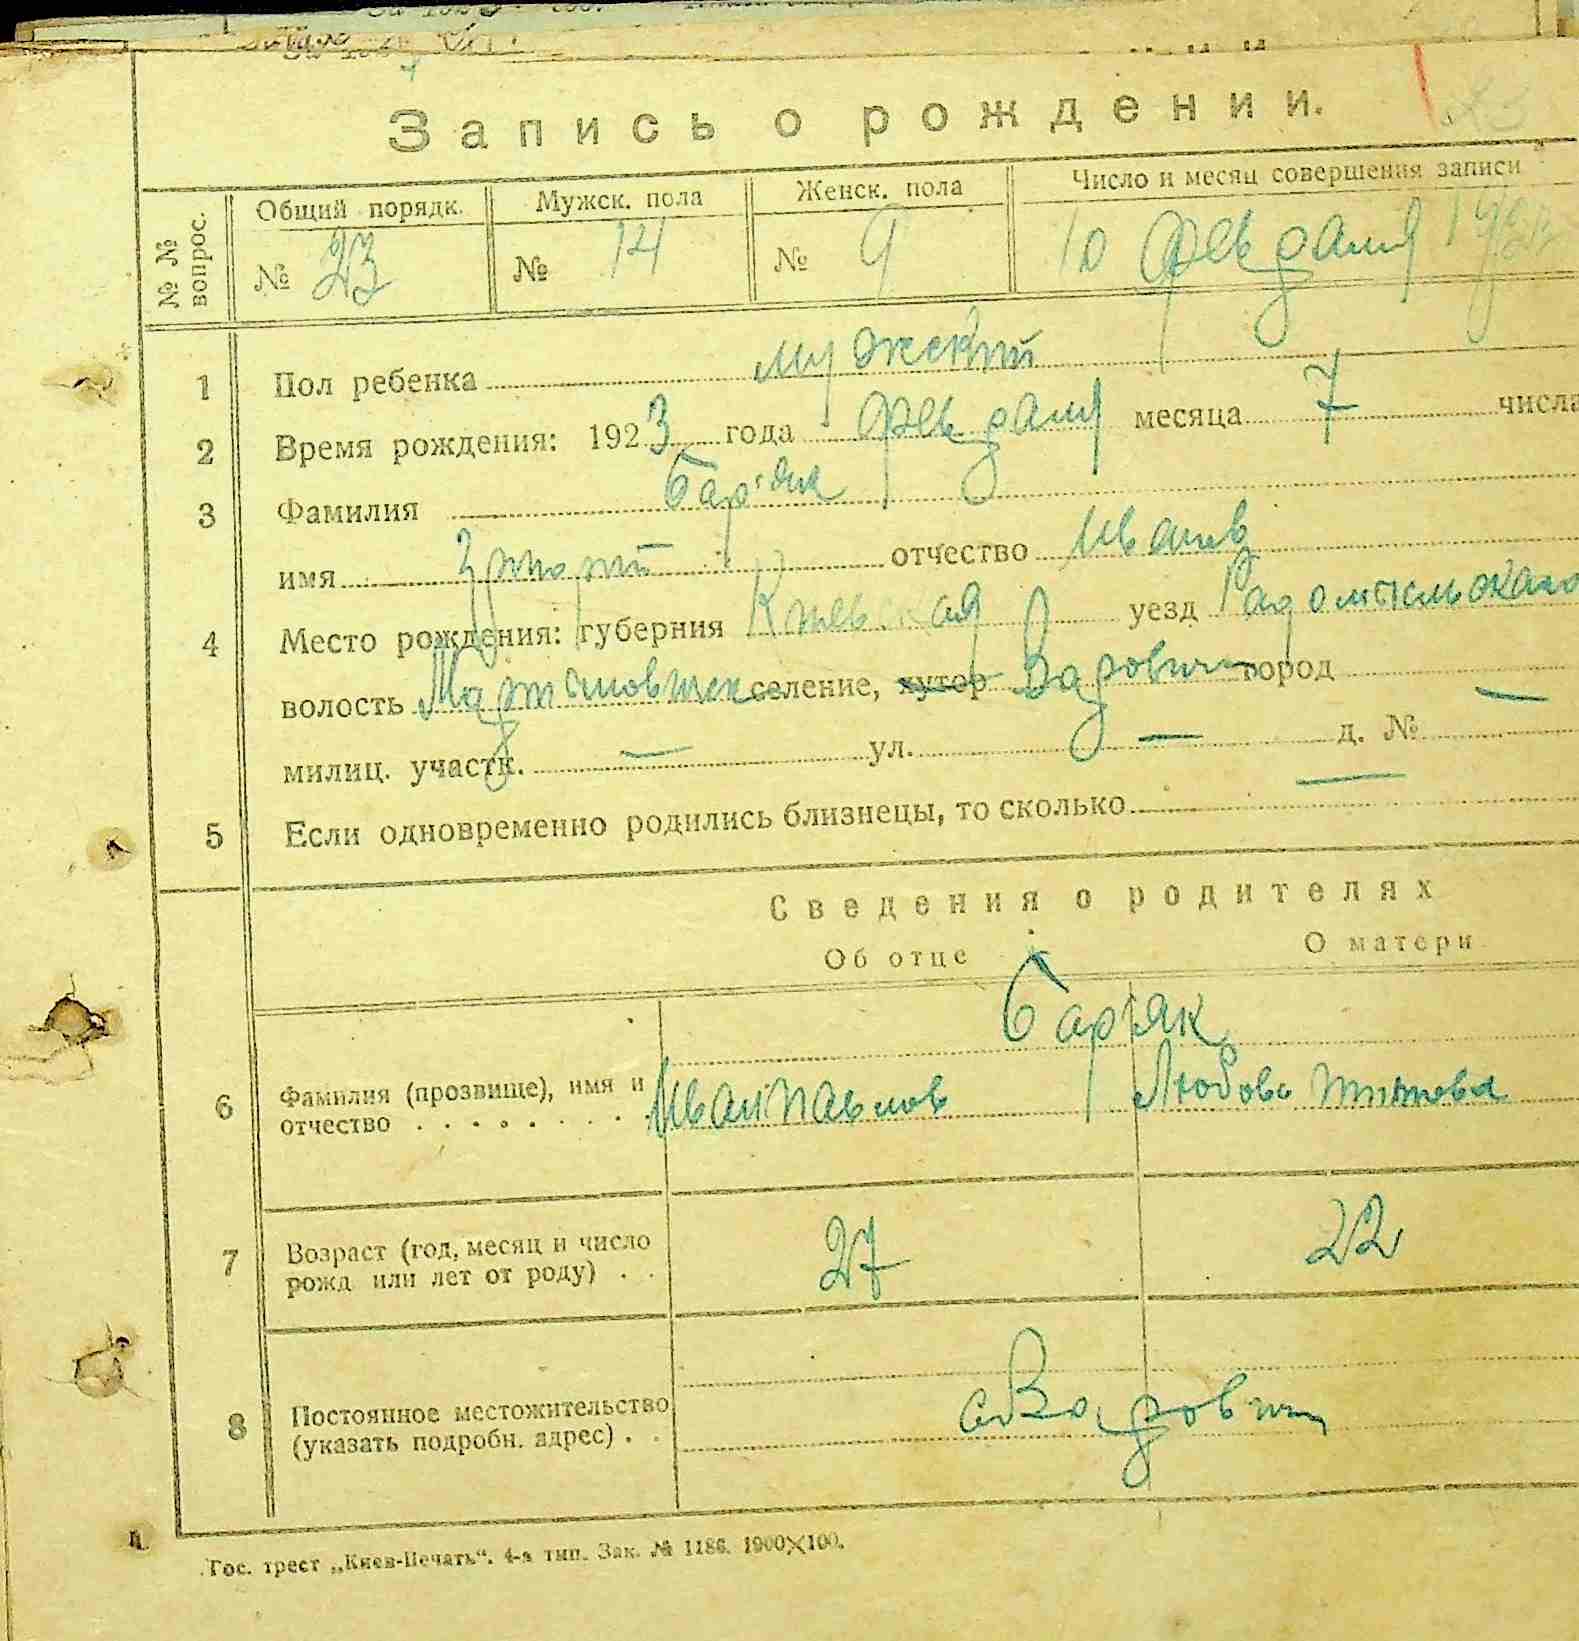 Запись о рождении.
№ № вопрос.
Общий порядк. Мужск. пола Женск. пола Число и месяц совершения записи
№ 23 № 14 № 9 10 февраля
1 Пол ребенка мужский
2 Время рождения: 1923 года февраля месяца 7 числа
3 Фамилия Бар'як
имя отчество Иванов
4 Место рождения: губерния Киевская уезд Радомысльского
волость Мартиновичск селение, хутор Варовичи город
милиц. участк. — ул. — д. № —
5 Если одновременно родились близнецы, то сколько —
Сведения о родителях
Об отце О матери
Бар'як
6 Фамилия (прозвище), имя и Иван Павлов Любовь Титова
отчество . . . . . . . .
7 Возраст (год, месяц и число 27 22
рожд или лет от роду) . .
8 Постоянное местожительство с Варовичи
(указать подробн. адрес) . .
Гос. трест „Киев-Печать“. 4-я тип. Зак. № 1186. 1900×100.